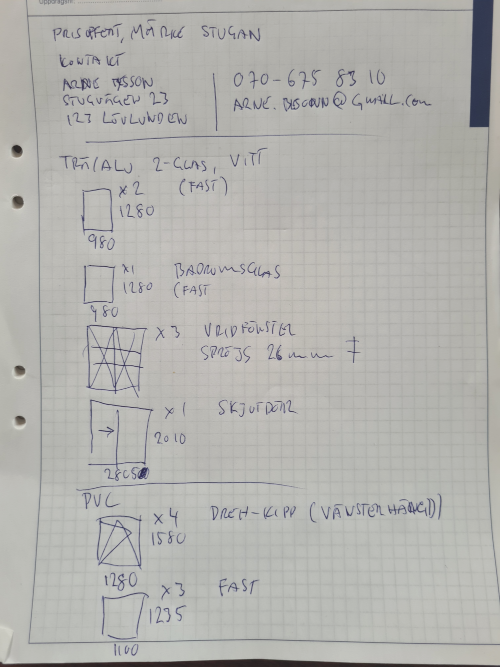 Uppdragsnr:
PRISOFFERT, MÄRKE STUGAN
KONTAKT
ARNE
STUGVÄGEN 23
123 LÖVLUNDEN
070-675 83 10
ARNE.@GMAIL.com
TRÄ/ALU 2-GLAS, VITT
x2 (FAST)
1280
980
x1 BADRUMSGLAS
1280 (FAST
480
x3 VRIDFÖNSTER
SPRÖJS 26mm
x1 SKJUTDÖRR
2010
PVC
x4 DREH-KIPP (VÄNSTERHÄNGD)
1580
1280
x3 FAST
1235
1100